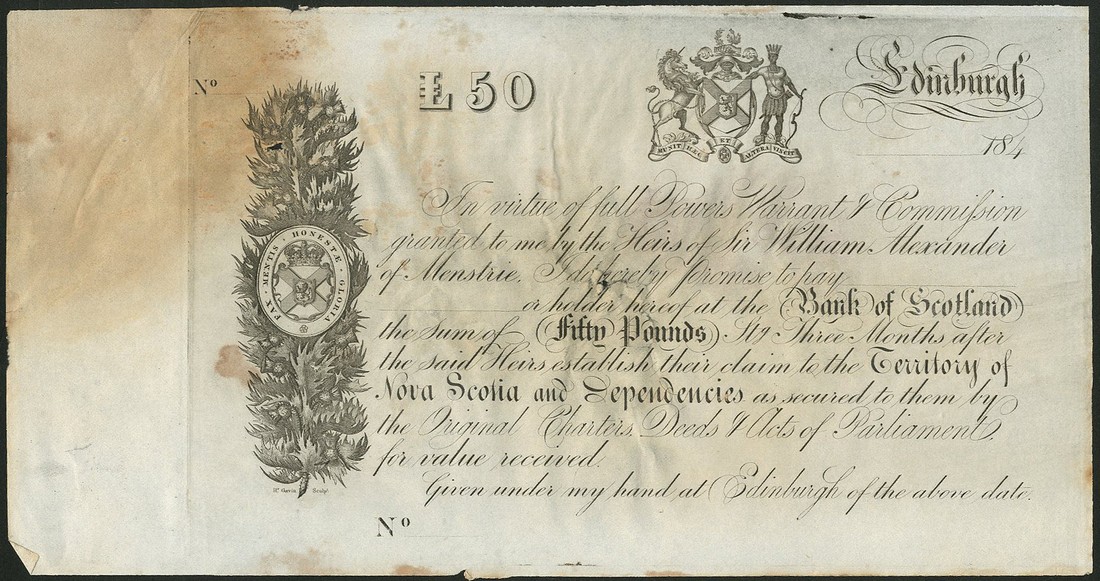 Nº
£50
Edinburgh
184
MUNIT HÆC ET ALTERA VINCIT
In virtue of full Powers Warrant & Commission
granted to me by the Heirs of Sir William Alexander
of Menstrie, I do hereby promise to pay
or holder hereof at the Bank of Scotland
the Sum of Fifty Pounds Stg Three Months after
the said Heirs establish their claim to the Territory of
Nova Scotia and Dependencies as secured to them by
the Original Charters, Deeds & Acts of Parliament,
for value received.
Given under my hand at Edinburgh of the above date.
Nº
PAX · MENTIS · HONESTÆ · GLORIA
Sculpt.